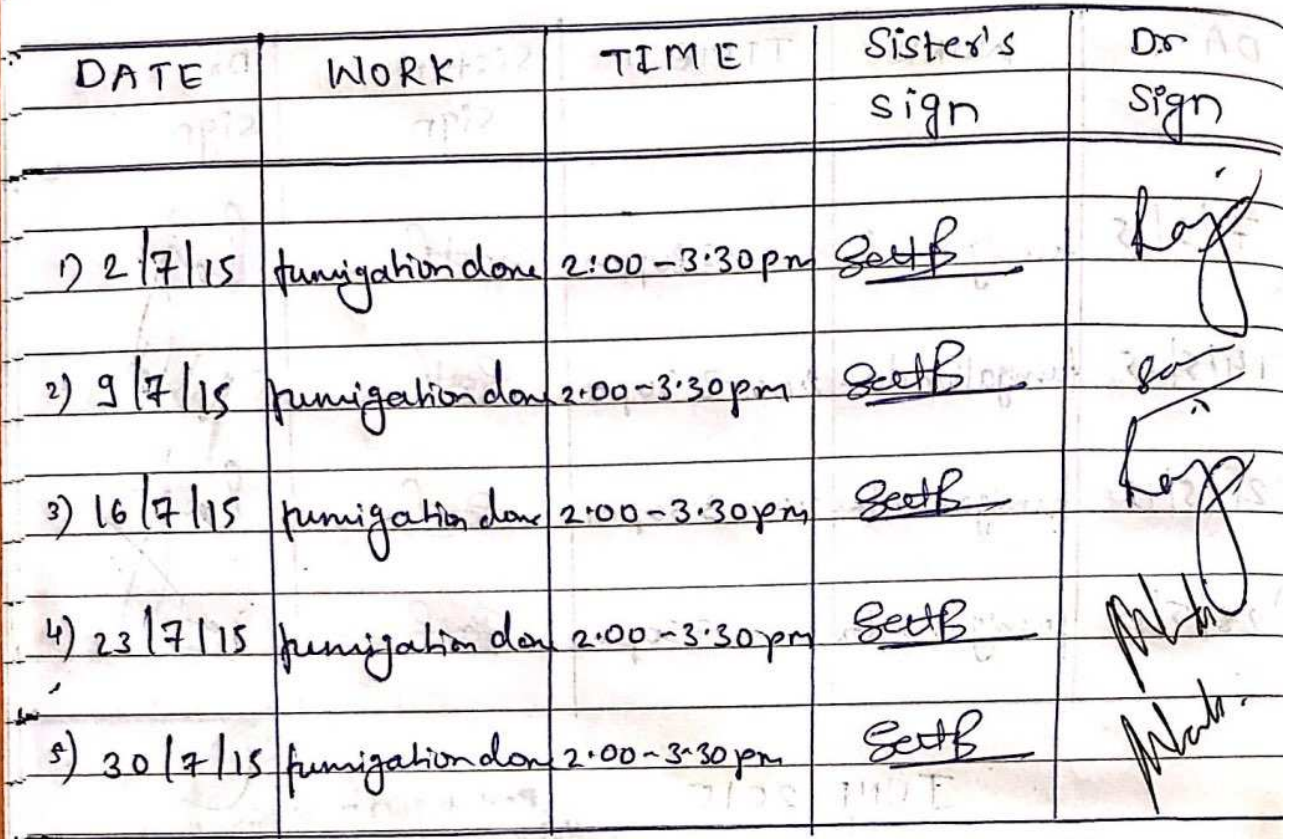 DATE WORK TIME Sister's Dr
sign Sign
1) 2/7/15 fumigation done 2:00-3.30pm
2) 9/7/15 fumigation done 2.00-3.30pm
3) 16/7/15 fumigation done 2.00-3.30pm
4) 23/7/15 fumigation done 2.00-3.30pm
5) 30/7/15 fumigation done 2.00-3-30pm